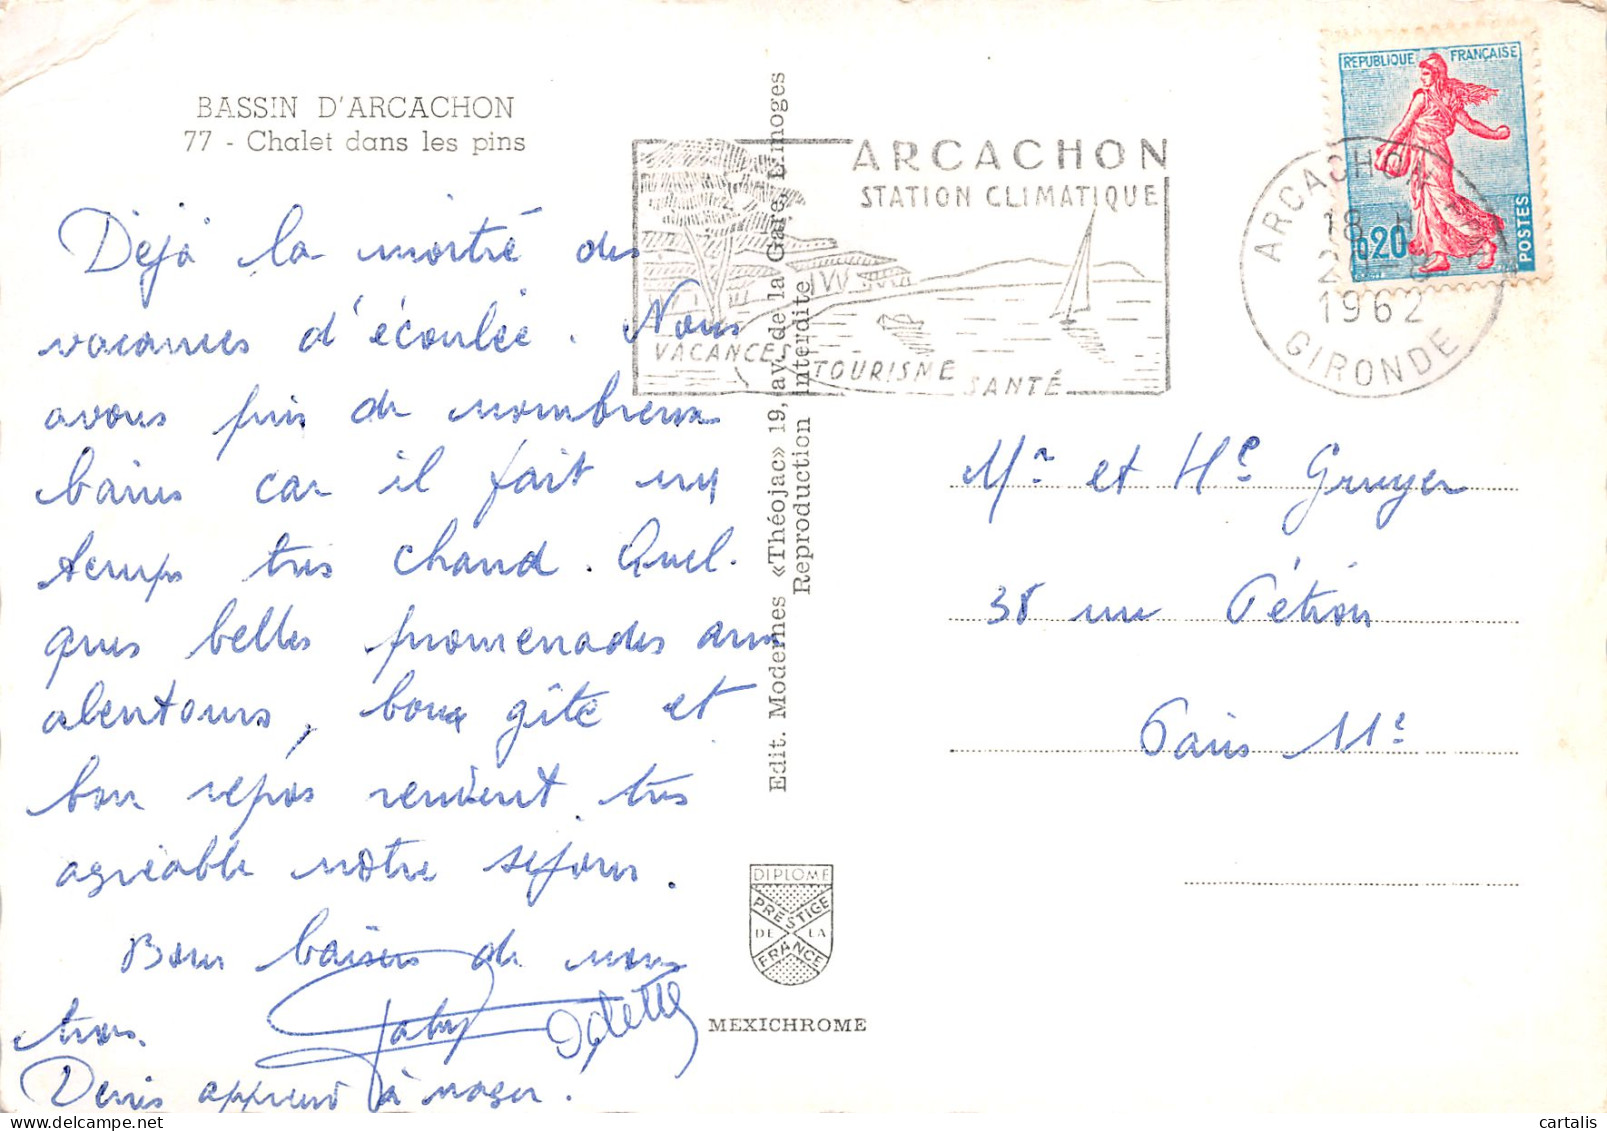 BASSIN D'ARCACHON
77 - Chalet dans les pins
Déjà la moitié des
vacances d'écoulée. Nous
avons pris de nombreux
bains car il fait un
temps très chaud. Quel-
ques belles promenades aux
alentours, bon gîte et
bon repos rendent très
agréable notre séjour.
Bons baisers de nous
trois.
Gaby Odette
Denis apprend à nager.
Edit. Modernes «Théojac» 19, av. de la Gare, Limoges
Reproduction interdite
DIPLOME
PRESTIGE
DE LA
FRANCE
MEXICHROME
ARCACHON
STATION CLIMATIQUE
VACANCES
TOURISME
SANTÉ
REPUBLIQUE FRANÇAISE
0,20
POSTES
ARCACHON
18 H
1962
GIRONDE
Mr et Me Gruyer
38 rue Pétion
Paris 11e
cartalis